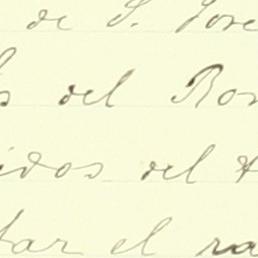 de S. Jose
s del Ro
idos del
tar el ra